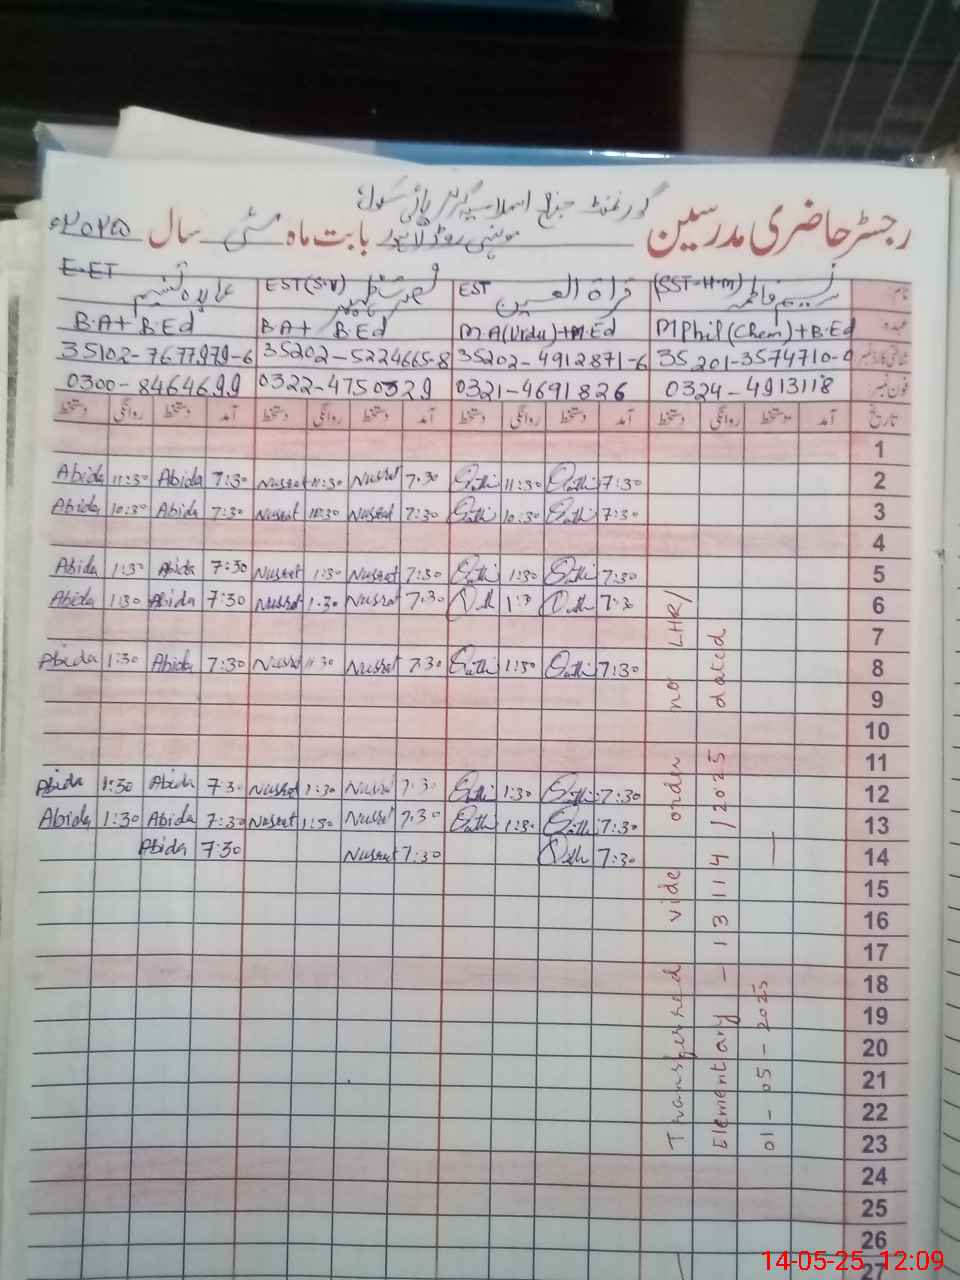 گورنمنٹ جناح اسلامیہ گرلز ہائی سکول
رجسٹر حاضری مدرسین موہنی روڈ لاہور بابت ماہ مئی سال ۲۰۲۵ء
(SST-H-M) نسرین فاطمہ EST قراۃ العین EST (S.V) نصرت E-ET عابدہ تسنیم
نام
B.A + B.Ed B.A + B.Ed M.A (Urdu) + M.Ed M Phil (Chem) + B.Ed عہدہ
35102-7677979-6 35202-5224665-8 35202-4912871-6 35201-3574710-0
0300-8464699 0322-4750329 0321-4691826 0324-4913118 فون نمبر
دستخط روانگی دستخط آمد دستخط روانگی دستخط آمد دستخط روانگی دستخط آمد دستخط روانگی دستخط آمد تاریخ
1
Abida 11:30 Abida 7:30 Nusrat 11:30 Nusrat 7.30 11:30 7:30 2
Abida 10:30 Abida 7:30 Nusrat 10:30 Nusrat 7:30 10:30 7:30 3
4
Abida 1:30 Abida 7:30 Nusrat 1:30 Nusrat 7:30 1:30 7:30 5
Abida 1:30 Abida 7:30 Nusrat 1.30 Nusrat 7.30 7:30 6
7
Abida 1:30 Abida 7:30 Nusrat 1:30 Nusrat 7:30 1:30 7:30 8
9
10
11
Abida 1:30 Abida 7:30 Nusrat 1:30 Nusrat 7.30 1:30 7:30 12
Abida 1:30 Abida 7:30 Nusrat 1:30 Nusrat 7.30 1:30 7:30 13
Abida 7:30 Nusrat 7:30 7:30 14
15
16
17
18
19
20
21
22
23
24
25
26
27
Transferred vide order no LHR/
Elementary - 13114 /2025 dated
01-05-2025 —
14-05-25 12:09